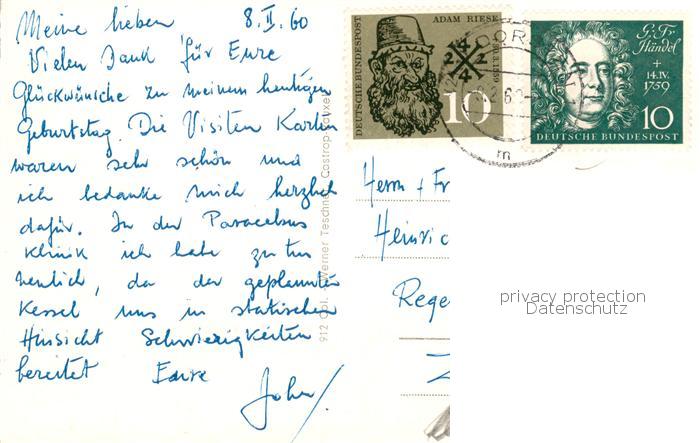 Meine lieben 8.II.60
Vielen Dank für Eure
Glückwünsche zu meinem heutigen
Geburtstag. Die Visiten Karten
waren sehr schön und
ich bedanke mich herzlich
dafür. In der Paracelsus
Klinik ich habe zu tun
, da der geplannte
Kessel uns in statischen
Hinsicht Schwierigkeiten
bereitet Eure
John
912 Col. Werner Teschner, Castrop-Rauxel
DEUTSCHE BUNDESPOST
ADAM RIESE
30.3.1559
2 4 2 4
10
G.F.
Händel
+
14.IV.
1759
10
DEUTSCHE BUNDESPOST
m
Herrn + Fr
Heinric
Rege
privacy protection
Datenschutz